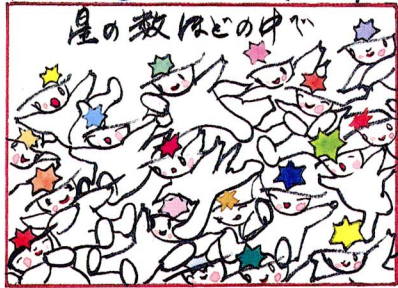 星の数ほどの中で